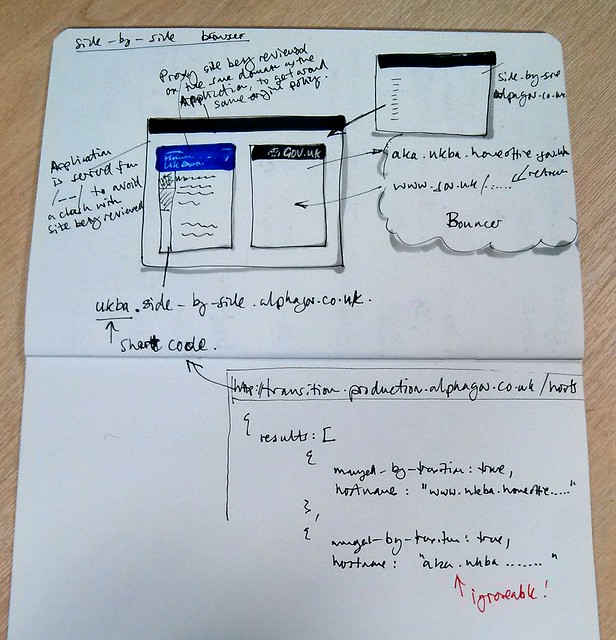 side-by-side browser
Proxy site being reviewed
on the same domain as the
Application, to get around
same origin policy.
side-by-side
alphagov.co.uk
Application
is served from
/__/ to avoid
a clash with
site being reviewed
Home
UK Border
GOV.UK
aka.ukba.homeoffice.gov.uk
www.gov.uk/......
return
Bouncer
ukba.side-by-side.alphagov.co.uk.
short code.
http://transition.production.alphagov.co.uk/hosts
{
results: [
{
managed-by-transition: true,
hostname: "www.ukba.homeoffice....."
},
{
managed-by-transition: true,
hostname: "aka.ukba ....... "
ignoreable!